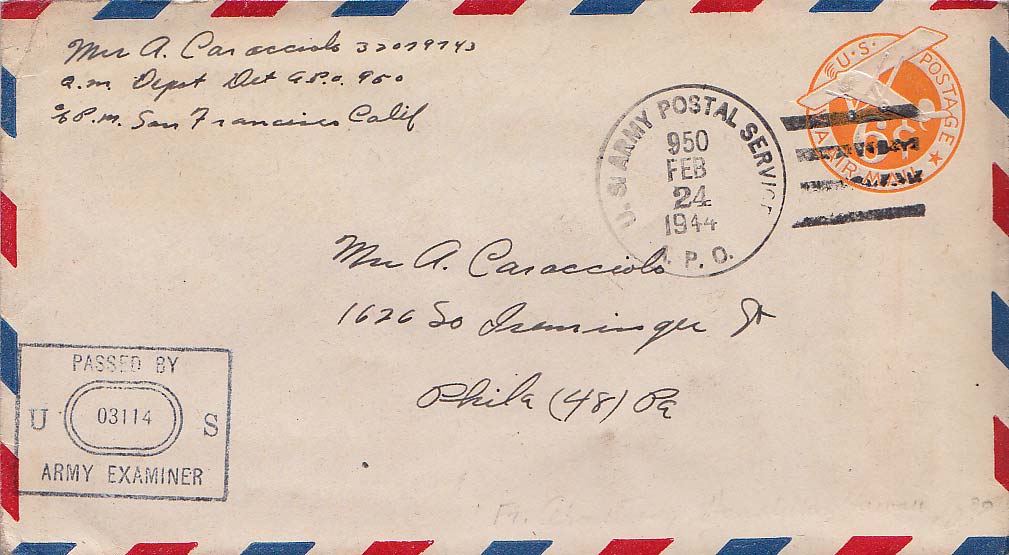 Mrr A. Caracciolo 32079743
a.m. Dept Det A.P.O. 950
℅ P.m. San Francisco Calif
U.S. POSTAGE
6¢
AIR MAIL
U. S. ARMY POSTAL SERVICE
950
FEB
24
1944
A. P. O.
Mrr A. Caracciolo
1626 So Iseminger St
Phila (48) Pa
PASSED BY
U 03114 S
ARMY EXAMINER